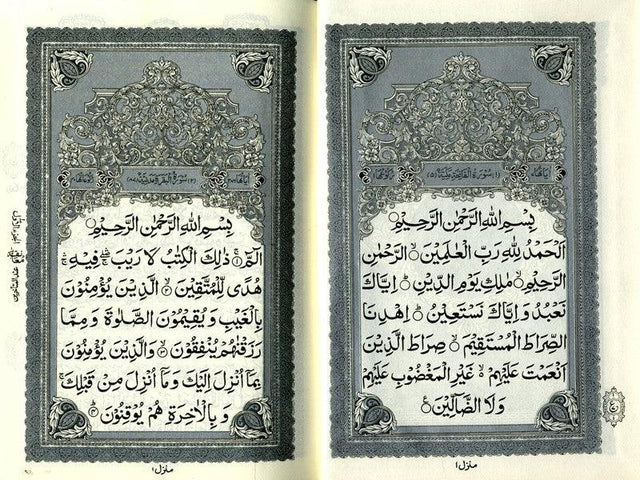 اٰيَاتُهَا (١) سُوْرَةُ الْفَاتِحَةِ مَكِّيَّةٌ (٥) رُكُوْعُهَا
بِسْمِ اللّٰهِ الرَّحْمٰنِ الرَّحِيْمِ
اَلْحَمْدُ لِلّٰهِ رَبِّ الْعٰلَمِيْنَ ۙ الرَّحْمٰنِ
الرَّحِيْمِ ۙ مٰلِكِ يَوْمِ الدِّيْنِ ؕ اِيَّاكَ
نَعْبُدُ وَ اِيَّاكَ نَسْتَعِيْنُ ؕ اِهْدِنَا
الصِّرَاطَ الْمُسْتَقِيْمَ ۙ صِرَاطَ الَّذِيْنَ
اَنْعَمْتَ عَلَيْهِمْ ۙ غَيْرِ الْمَغْضُوْبِ عَلَيْهِمْ
وَلَا الضَّآلِّيْنَ
منزل ١
سُوْرَةُ الْبَقَرَةِ مَدَنِيَّةٌ
بِسْمِ اللّٰهِ الرَّحْمٰنِ الرَّحِيْمِ
الٓمّٓ ۚ ذٰلِكَ الْكِتٰبُ لَا رَيْبَ ۛ فِيْهِ ۛ
هُدًى لِّلْمُتَّقِيْنَ ۙ الَّذِيْنَ يُؤْمِنُوْنَ
بِالْغَيْبِ وَ يُقِيْمُوْنَ الصَّلٰوةَ وَ مِمَّا
رَزَقْنٰهُمْ يُنْفِقُوْنَ ۙ وَالَّذِيْنَ يُؤْمِنُوْنَ
بِمَآ اُنْزِلَ اِلَيْكَ وَ مَآ اُنْزِلَ مِنْ قَبْلِكَ ۚ
وَ بِالْاٰخِرَةِ هُمْ يُوْقِنُوْنَ
منزل ١